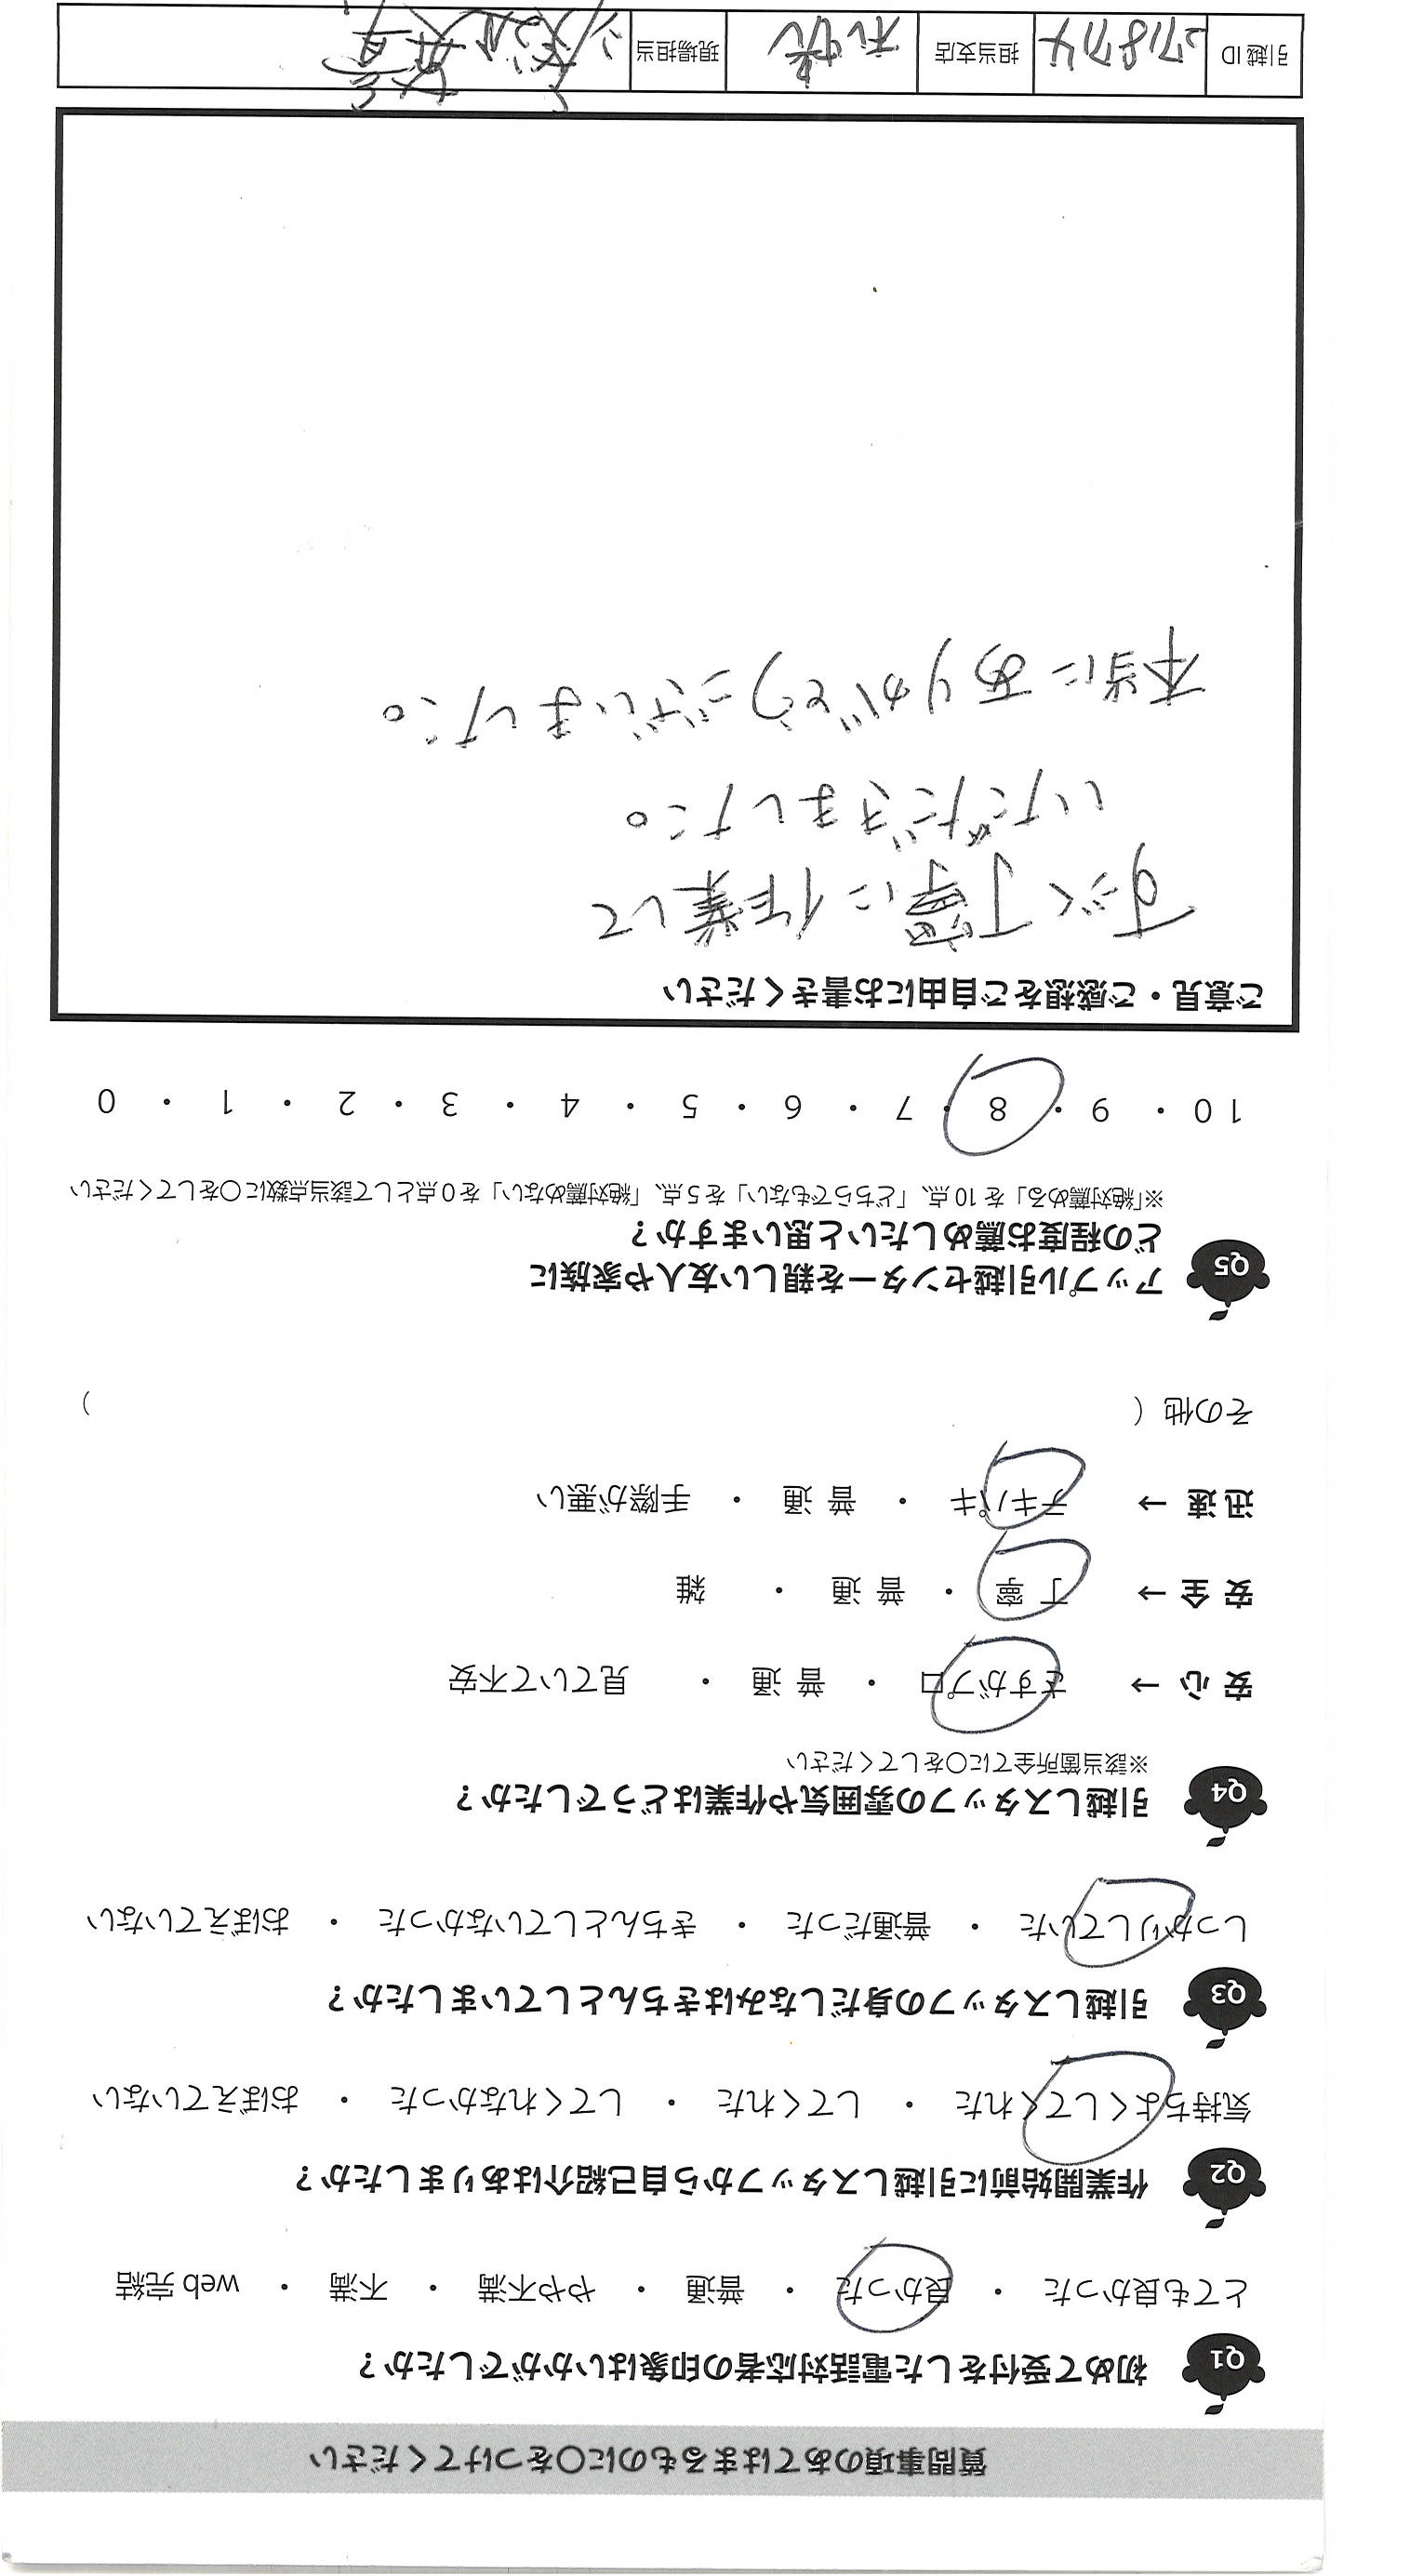 質問事項のあてはまるものに〇をつけてください
Q1 初めて受付をした電話対応者の印象はいかがでしたか？
とても良かった ・ 良かった ・ 普通 ・ やや不満 ・ 不満 ・ web 完結
Q2 作業開始前に引越しスタッフから自己紹介はありましたか？
気持ちよくしてくれた ・ してくれた ・ してくれなかった ・ おぼえていない
Q3 引越しスタッフの身だしなみはきちんとしていましたか？
しっかりしていた ・ 普通だった ・ きちんとしていなかった ・ おぼえていない
Q4 引越しスタッフの雰囲気や作業はどうでしたか？
※該当箇所全てに〇をしてください
安 心 → さすがプロ ・ 普 通 ・ 見ていて不安
安 全 → 丁 寧 ・ 普 通 ・ 雑
迅 速 → テキパキ ・ 普 通 ・ 手際が悪い
その他（ ）
Q5 アップル引越センターを親しい友人や家族に
どの程度お薦めしたいと思いますか？
※「絶対薦める」を 10 点、「どちらでもない」を 5 点、「絶対薦めない」を 0 点として該当点数に〇をしてください
10 ・ 9 ・ 8 ・ 7 ・ 6 ・ 5 ・ 4 ・ 3 ・ 2 ・ 1 ・ 0
ご意見・ご感想をご自由にお書きください
すごく丁寧に作業して
いただきました。
本当にありがとうございました。
引越 ID 278714 担当支店 現場担当